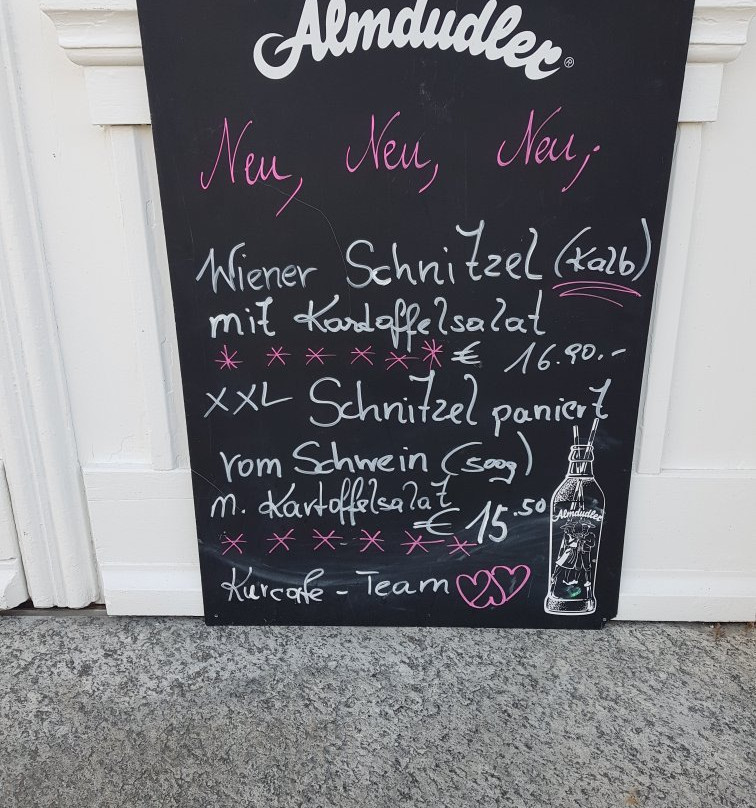 Almdudler®
Neu, Neu, Neu,
Wiener Schnitzel (Kalb)
mit Kartoffelsalat
* * * * * * € 16.90.-
XXL Schnitzel paniert
vom Schwein (500g)
m. Kartoffelsalat
€ 15.50
* * * * * *
Kurcafe - Team
Almdudler